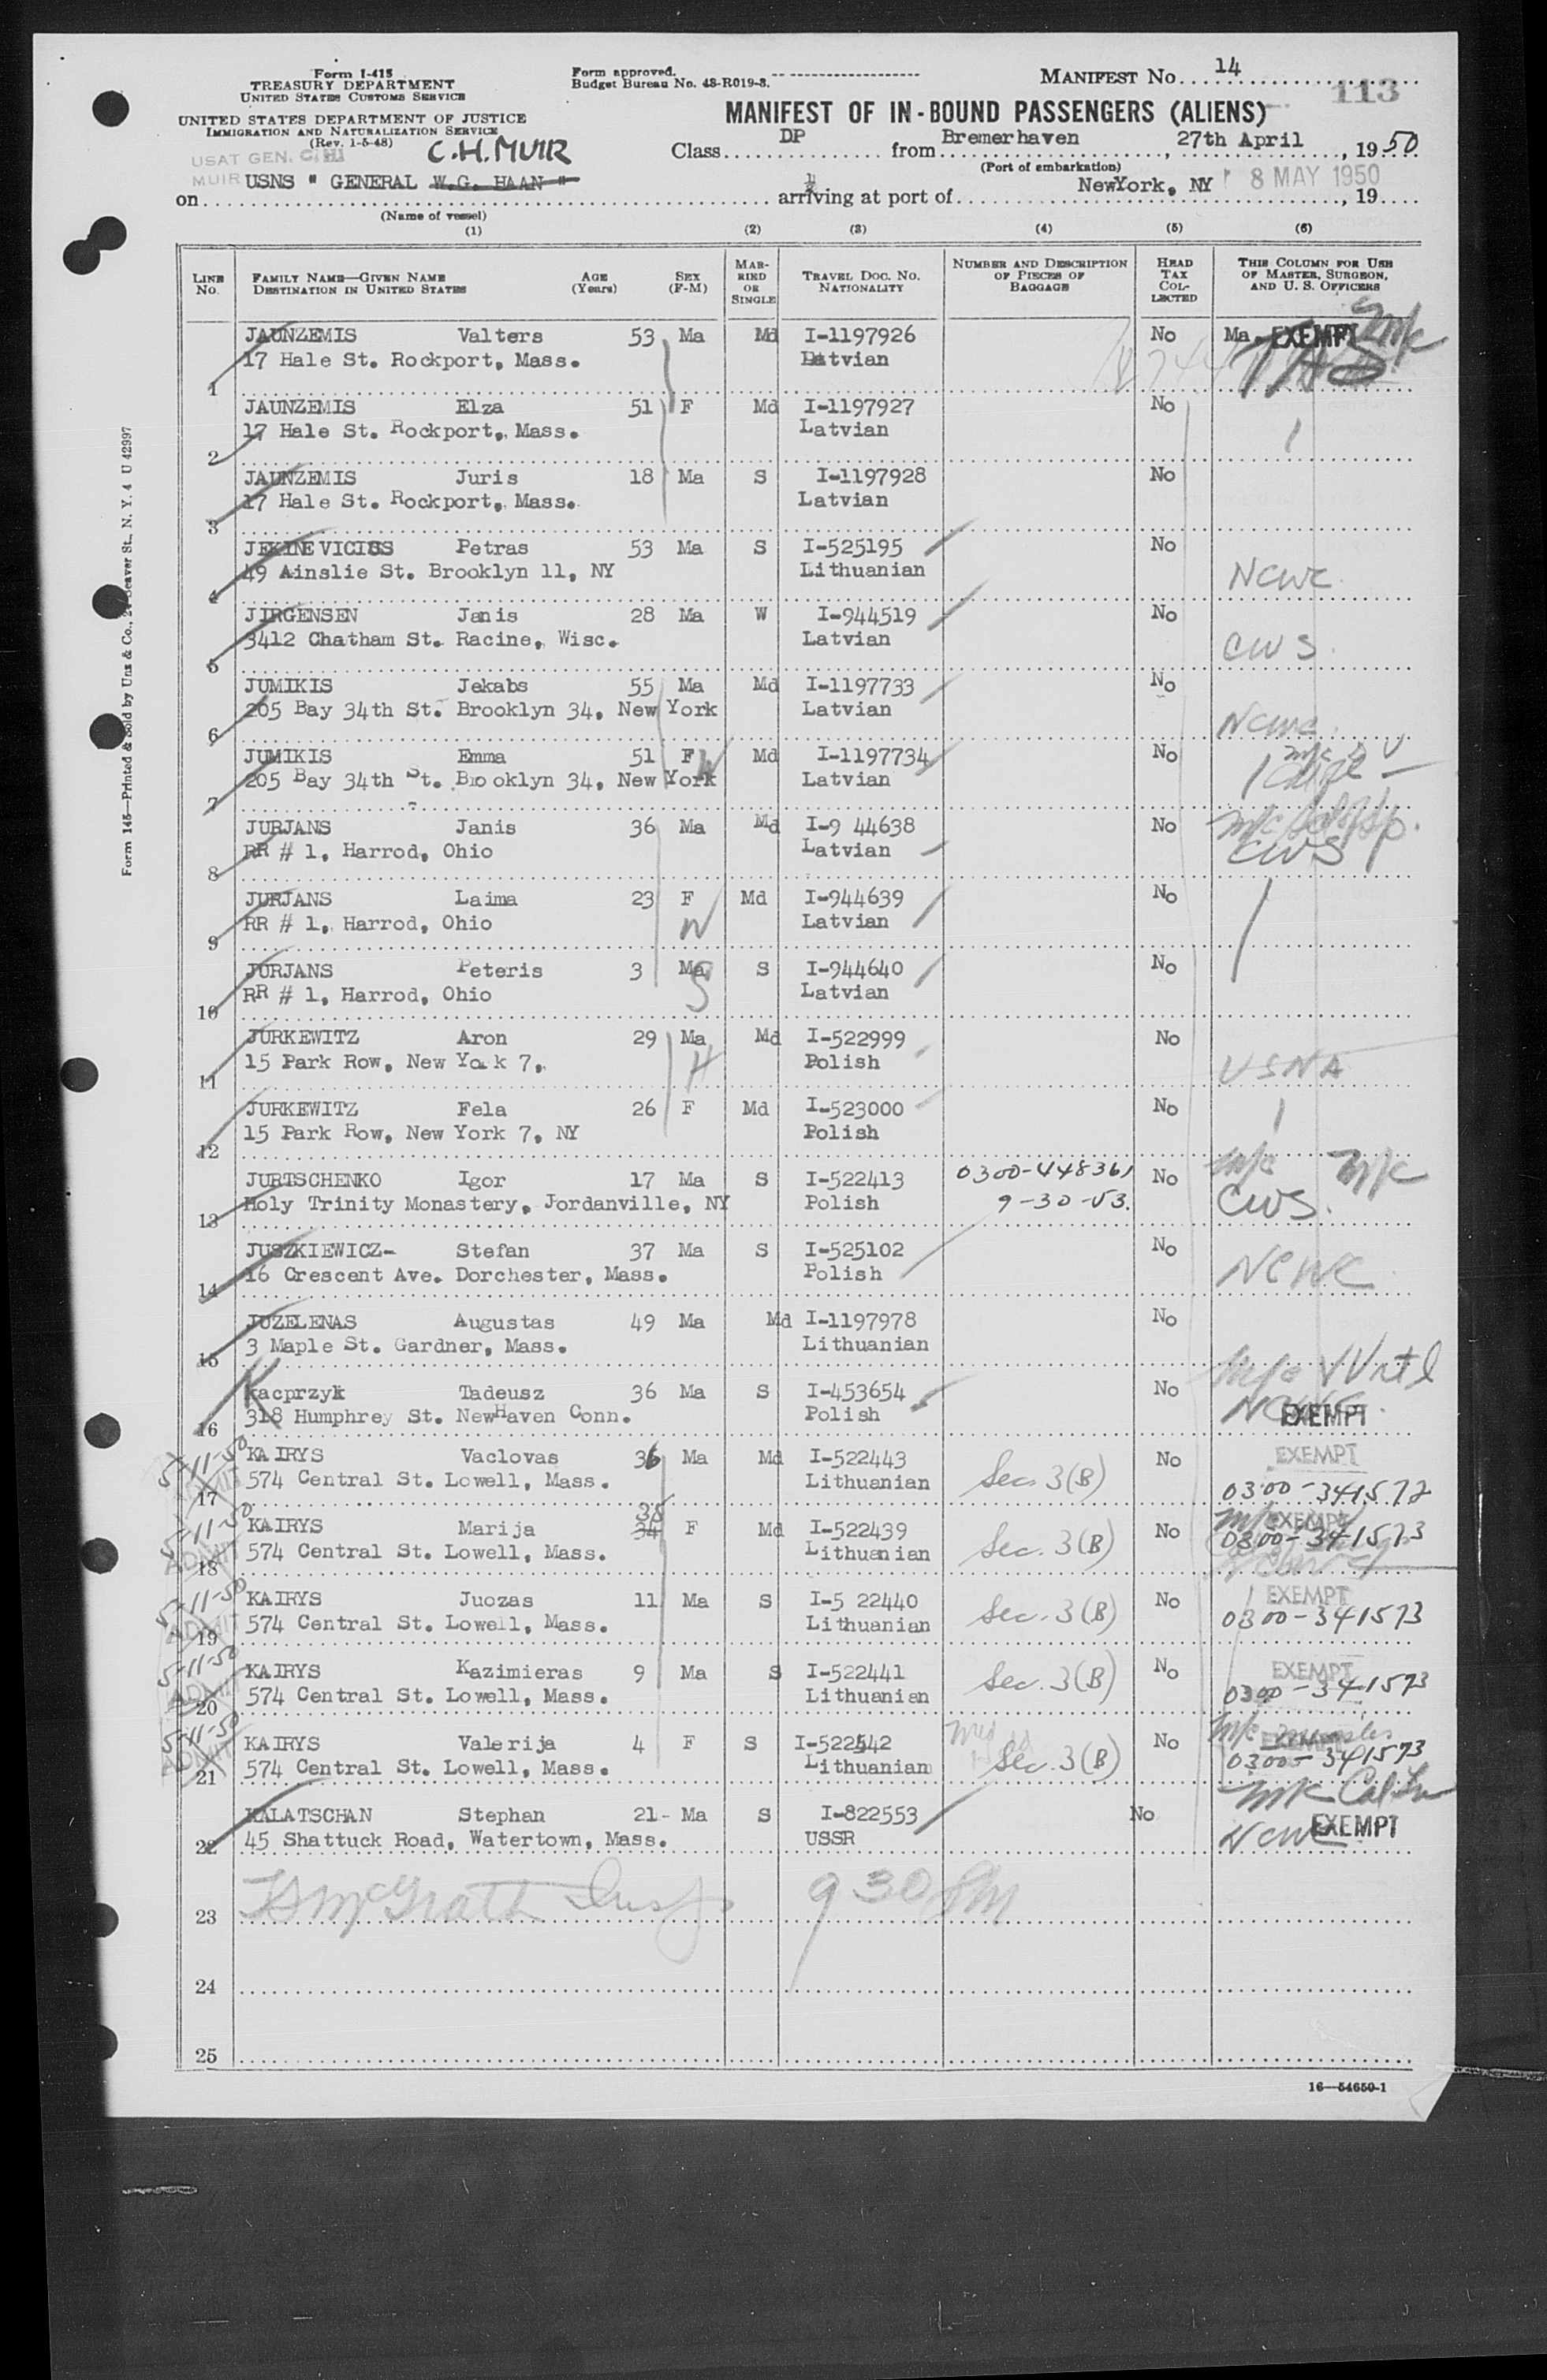 Form I-415
TREASURY DEPARTMENT
UNITED STATES CUSTOMS SERVICE
UNITED STATES DEPARTMENT OF JUSTICE
IMMIGRATION AND NATURALIZATION SERVICE
(Rev. 1-5-48)
Form approved.
Budget Bureau No. 43-R019-3.
MANIFEST No. 14
113
MANIFEST OF IN-BOUND PASSENGERS (ALIENS)
Class DP from Bremerhaven, 27th April, 1950
(Port of embarkation)
USAT GEN. C. H.
MUIR
C.H. MUIR
on USNS " GENERAL W.G. HAAN " arriving at port of NewYork, NY 8 MAY 1950, 19
(Name of vessel)
(1) (2) (3) (4) (5) (6)
LINE No. FAMILY NAME—GIVEN NAME DESTINATION IN UNITED STATES AGE (Years) SEX (F-M) MARRIED OR SINGLE TRAVEL DOC. NO. NATIONALITY NUMBER AND DESCRIPTION OF PIECES OF BAGGAGE HEAD TAX COLLECTED THIS COLUMN FOR USE OF MASTER, SURGEON, AND U. S. OFFICERS
JAUNZEMIS Valters 53 Ma Md I-1197926 No Ma EXEMPT
1 17 Hale St. Rockport, Mass. Latvian
JAUNZEMIS Elza 51 F Md I-1197927 No
2 17 Hale St. Rockport, Mass. Latvian
JAUNZEMIS Juris 18 Ma S I-1197928 No
3 17 Hale St. Rockport, Mass. Latvian
JEKINEVICIUS Petras 53 Ma S I-525195 No
4 49 Ainslie St. Brooklyn 11, NY Lithuanian NCWC
JIRGENSEN Janis 28 Ma W I-944519 No
5 3412 Chatham St. Racine, Wisc. Latvian CWS
JUMIKIS Jekabs 55 Ma Md I-1197733 No
6 205 Bay 34th St. Brooklyn 34, New York Latvian NCWC
JUMIKIS Emma 51 F Md I-1197734 No
7 205 Bay 34th St. Brooklyn 34, New York Latvian
JURJANS Janis 36 Ma Md I-9 44638 No
8 RR # 1, Harrod, Ohio Latvian CWS
JURJANS Laima 23 F Md I-944639 No
9 RR # 1, Harrod, Ohio W Latvian
JURJANS Peteris 3 Ma S I-944640 No
10 RR # 1, Harrod, Ohio S Latvian
JURKEWITZ Aron 29 Ma Md I-522999 No
11 15 Park Row, New York 7, H Polish USNA
JURKEWITZ Fela 26 F Md I-523000 No
12 15 Park Row, New York 7, NY Polish
JURTSCHENKO Igor 17 Ma S I-522413 0300-448361 No
13 Holy Trinity Monastery, Jordanville, NY Polish 9-30-53. CWS.
JUSZKIEWICZ- Stefan 37 Ma S I-525102 No
14 16 Crescent Ave. Dorchester, Mass. Polish NCWC
JUZELENAS Augustas 49 Ma Md I-1197978 No
15 3 Maple St. Gardner, Mass. Lithuanian
Kacprzyk Tadeusz 36 Ma S I-453654 No
16 318 Humphrey St. NewHaven Conn. Polish NCWC EXEMPT
5-11-50 KAIRYS Vaclovas 36 Ma Md I-522443 Sec. 3(B) No EXEMPT
ADMIT 17 574 Central St. Lowell, Mass. Lithuanian 0300-341572
5-11-50 KAIRYS Marija 34 35 F Md I-522439 Sec. 3(B) No EXEMPT
ADMIT 18 574 Central St. Lowell, Mass. Lithuanian 0300-341573
5-11-50 KAIRYS Juozas 11 Ma S I-5 22440 Sec. 3(B) No EXEMPT
ADMIT 19 574 Central St. Lowell, Mass. Lithuanian 0300-341573
5-11-50 KAIRYS Kazimieras 9 Ma S I-522441 Sec. 3(B) No EXEMPT
ADMIT 20 574 Central St. Lowell, Mass. Lithuanian 0300-341573
5-11-50 KAIRYS Valerija 4 F S I-522442 Sec. 3(B) No EXEMPT
ADMIT 21 574 Central St. Lowell, Mass. Lithuanian 0300-341573
KALATSCHAN Stephan 21- Ma S I-822553 No
22 45 Shattuck Road, Watertown, Mass. USSR NCWC EXEMPT
23 McGrath Insp. 930 PM
24
25
16—54650-1